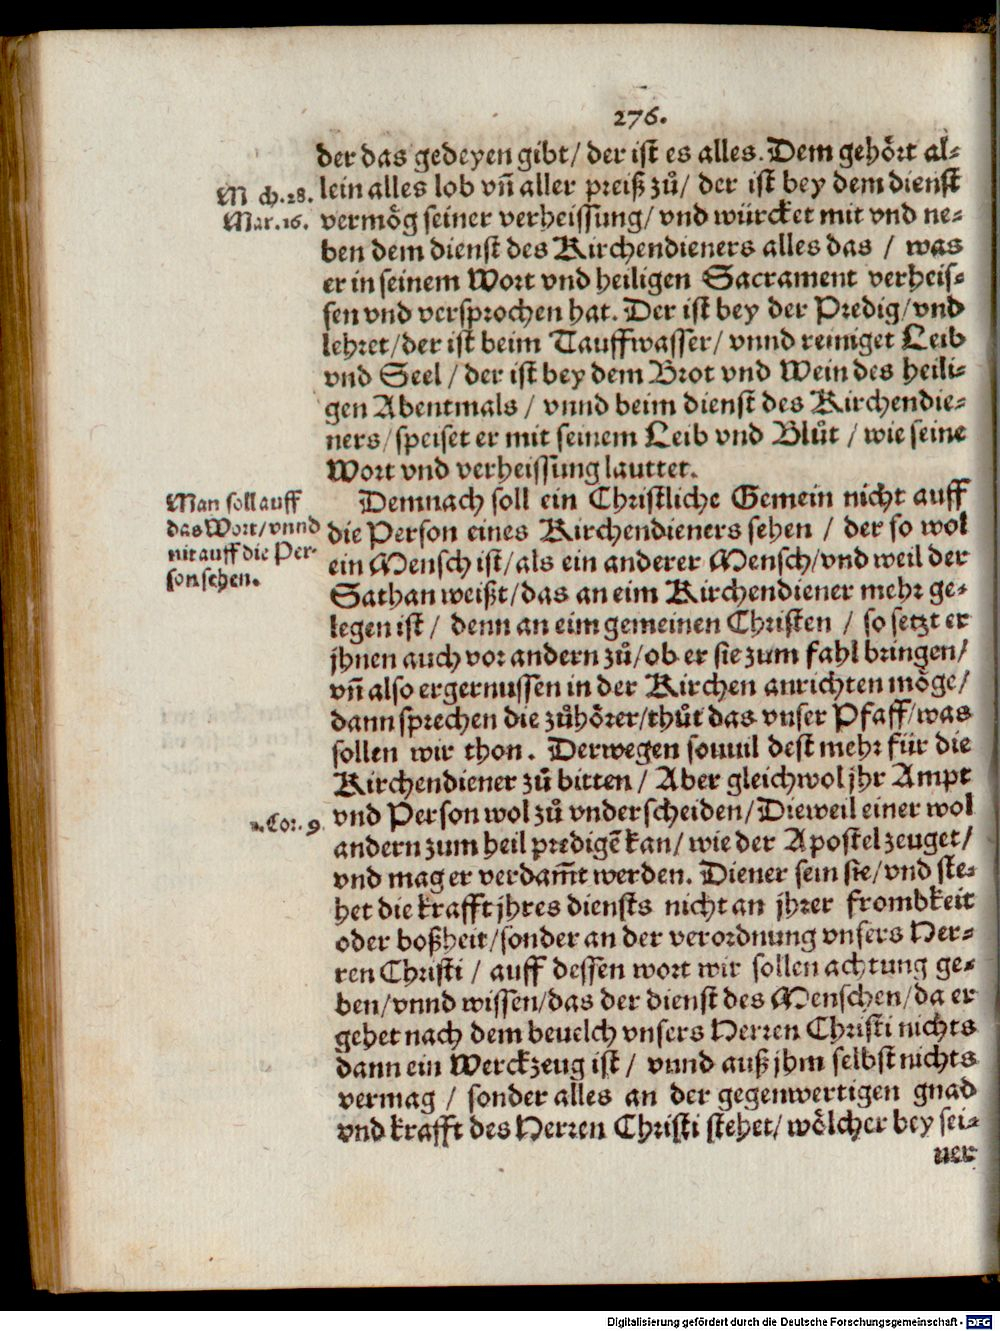 276.
der das gedeyen gibt/ der ist es alles. Dem gehoͤrt al-
lein alles lob vñ aller preiß zů/ der ist bey dem dienst
vermoͤg seiner verheissung/ vnd würcket mit vnd ne-
ben dem dienst des Kirchendieners alles das / was
er in seinem Wort vnd heiligen Sacrament verheis-
sen vnd versprochen hat. Der ist bey der Predig/ vnd
lehret/ der ist beim Tauffwasser/ vnnd reiniget Leib
vnd Seel / der ist bey dem Brot vnd Wein des heili-
gen Abentmals / vnnd beim dienst des Kirchendie-
ners/ speiset er mit seinem Leib vnd Blůt / wie seine
Wort vnd verheissung lauttet.
Mar. 16.
Demnach soll ein Christliche Gemein nicht auff
die Person eines Kirchendieners sehen / der so wol
ein Mensch ist/ als ein anderer Mensch/ vnd weil der
Sathan weißt/ das an eim Kirchendiener mehr ge-
legen ist / denn an eim gemeinen Christen / so setzt er
jhnen auch vor andern zů/ ob er sie zum fahl bringen/
vñ also ergernussen in der Kirchen anrichten moͤge/
dann sprechen die zůhoͤrer/ thůt das vnser Pfaff/ was
sollen wir thon. Derwegen souuil dest mehr für die
Kirchendiener zů bitten / Aber gleichwol jhr Ampt
vnd Person wol zů vnderscheiden/ Dieweil einer wol
andern zum heil predigẽ kan/ wie der Apostel zeuget/
vnd mag er verdam̃t werden. Diener sein sie/ vnd ste-
het die krafft jhres diensts nicht an jhrer frombkeit
oder boßheit/ sonder an der verordnung vnsers Her-
ren Christi / auff dessen wort wir sollen achtung ge-
ben/ vnnd wissen/ das der dienst des Menschen/ da er
gehet nach dem beuelch vnsers Herren Christi nichts
dann ein Werckzeug ist / vnnd auß jhm selbst nichts
vermag / sonder alles an der gegenwertigen gnad
vnd krafft des Herren Christi stehet/ woͤlcher bey sei-
ner
Man soll auff
das Wort/ vnnd
nit auff die Per-
son sehen.
Cor. 9
Digitalisierung gefördert durch die Deutsche Forschungsgemeinschaft - DFG